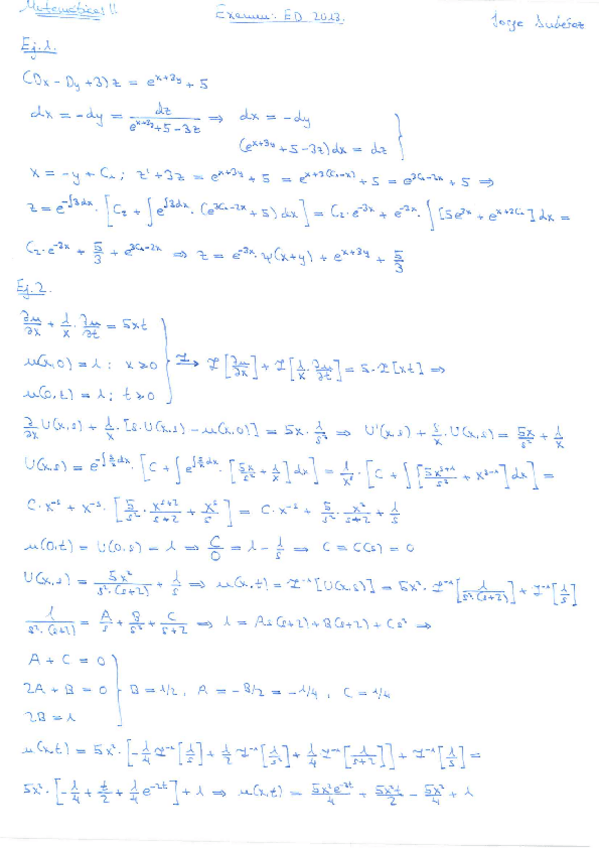 Matemáticas II Examen: ED 2013. Jorge
Ej. 1.
(Dx - Dy + 3) z = e^{x+3y} + 5
dx = -dy = dz / (e^{x+3y} + 5 - 3z) ⇒ dx = -dy
(e^{x+3y} + 5 - 3z) dx = dz }
x = -y + C₁ ; z' + 3z = e^{x+3y} + 5 = e^{x+3(C₁-x)} + 5 = e^{3C₁-2x} + 5 ⇒
z = e^{-∫3dx} · [C₂ + ∫e^{∫3dx} · (e^{3C₁-2x} + 5) dx] = C₂·e^{-3x} + e^{-3x} · ∫[5e^{3x} + e^{x+3C₁}] dx =
C₂·e^{-3x} + 5/3 + e^{3C₁-2x} ⇒ z = e^{-3x}·ψ(x+y) + e^{x+3y} + 5/3
Ej. 2.
∂u/∂x + 1/x · ∂u/∂t = 5xt
u(x,0) = 1 ; x>0 } ℒ→ ℒ[∂u/∂x] + ℒ[1/x · ∂u/∂t] = 5·ℒ[xt] ⇒
u(0,t) = 1 ; t>0
∂/∂x U(x,s) + 1/x · [s·U(x,s) - u(x,0)] = 5x · 1/s² ⇒ U'(x,s) + s/x · U(x,s) = 5x/s² + 1/x
U(x,s) = e^{-∫s/x dx} · [C + ∫e^{∫s/x dx} · [5x/s² + 1/x] dx] = 1/x^s · [C + ∫[5x^{s+1}/s² + x^{s-1}] dx] =
C·x^{-s} + x^{-s} · [5/s² · x^{s+2}/(s+2) + x^s/s] = C·x^{-s} + 5/s² · x²/(s+2) + 1/s
u(0,t) = U(0,s) = 1 ⇒ C/0 = 1 - 1/s ⇒ C = C(s) = 0
U(x,s) = 5x²/(s²·(s+2)) + 1/s ⇒ u(x,t) = ℒ^{-1}[U(x,s)] = 5x² · ℒ^{-1}[1/(s²·(s+2))] + ℒ^{-1}[1/s]
1/(s²·(s+2)) = A/s + B/s² + C/(s+2) ⇒ 1 = As(s+2) + B(s+2) + Cs² ⇒
A + C = 0
2A + B = 0 } B = 1/2 , A = -B/2 = -1/4 , C = 1/4
2B = 1
u(x,t) = 5x² · [-1/4 ℒ^{-1}[1/s] + 1/2 ℒ^{-1}[1/s²] + 1/4 ℒ^{-1}[1/(s+2)]] + ℒ^{-1}[1/s] =
5x² · [-1/4 + t/2 + 1/4 e^{-2t}] + 1 ⇒ u(x,t) = 5x²e^{-2t}/4 + 5x²t/2 - 5x²/4 + 1